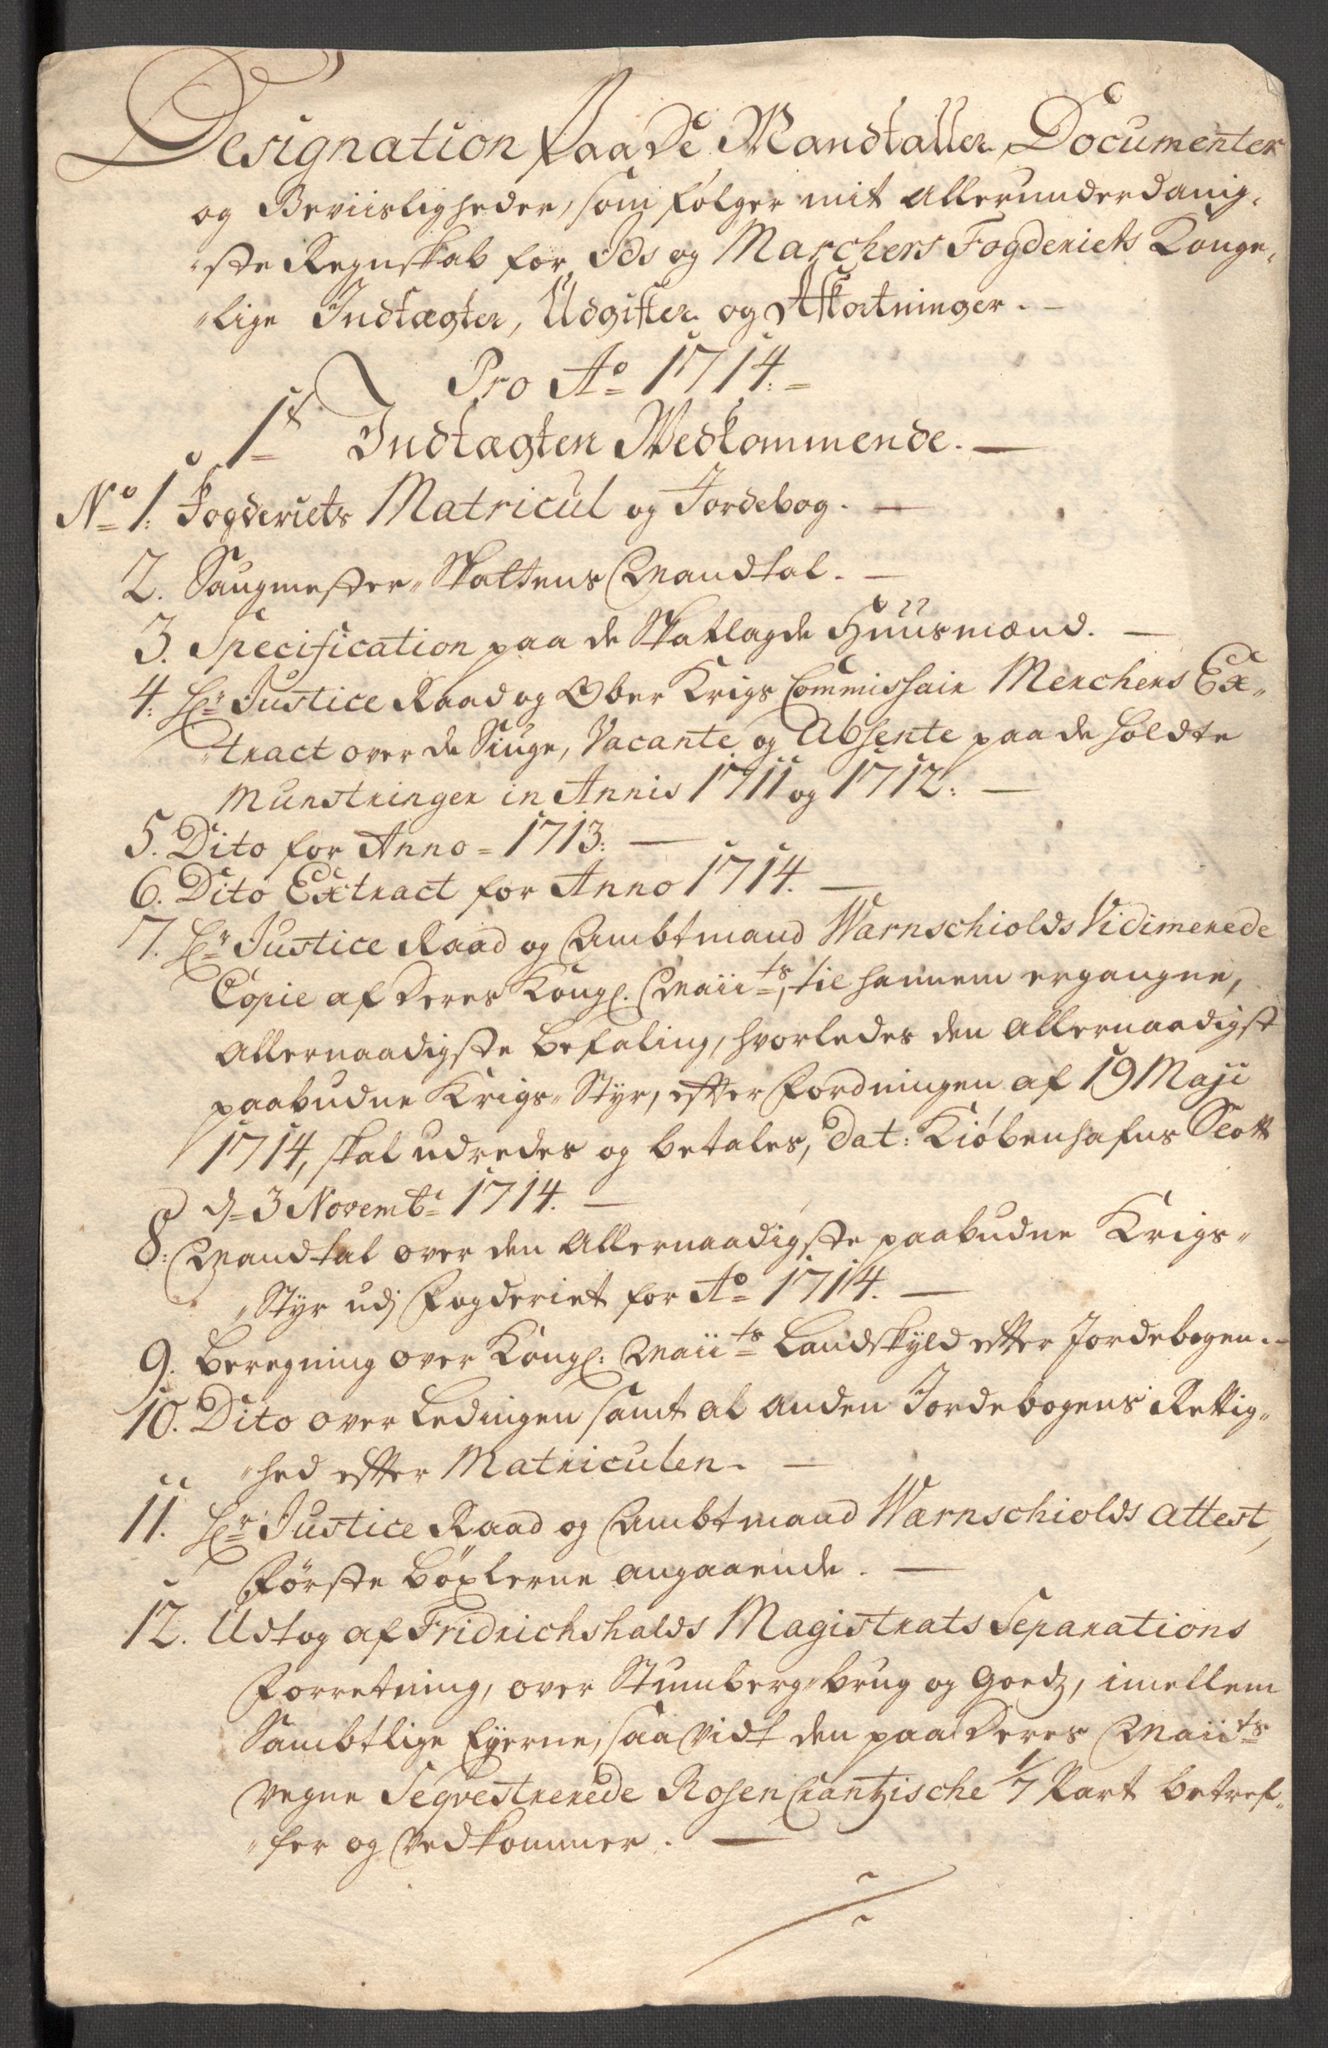 Designation Paa De Mandtaller, Documenter
og Beviisligheder, som følger mit allerunderdanig-
„ste Regnskab for Ids og Marchers Fogderiets Konge-
„lige Indtægter, Udgifter og Afkortninger. –
Pro Ao 1714. –
1t Indtægten Wedkommende. –
No 1. Fogderiets Matricul og Jordebog. –
2. Saugmester-Skattens Mandtal. –
3. Specification paa de Skatlagde Huusmænd. –
4. Hr Justice Raad og Ober Krigs Commissair Merchers Ex-
„tract over de Siuge, Vacante og Absente paa de holdte
Munstringer in Annis 1711 og 1712. –
5. Dito for Anno 1713. –
6. Dito Extract for Anno 1714. –
7. Hr Justice Raad og Ambtmand Warnschiolds Vidimerede
Copie af Deres Kongl. Maiits, til hannem ergangne,
Allernaadigste befaling, hvorledes den Allernaadigst
paabudne Krigs-Styr, efter Fordningen af 19 Maji
1714, skal udredes og betales, dat: Kiøbenhafns Slott
d= 3 Novembr 1714. –
8. Mandtal over den Allernaadigste paabudne Krigs-
„Styr udj Fogderiet for Ao 1714. –
9. Beregning over Kongl. Maiits Landskyld efter Jordebogen. –
10. Dito over Ledingen samt al anden Jordebogens Rettig-
„hed efter Matriculen. –
11. Hr Justice Raad og Ambtmand Warnschiolds Attest,
Første bøxlerne angaaende. –
12. Udtog af Fridrichshalds Magistrats Separations
Forretning, over Stumberg-brug og Goedz, imellem
Sambtlige Eyerne, saavidt den paa Deres Maiits
Vegne Seqvestrerede Rosencrantzische 1/7 Part betref-
„fer og vedkommer. –